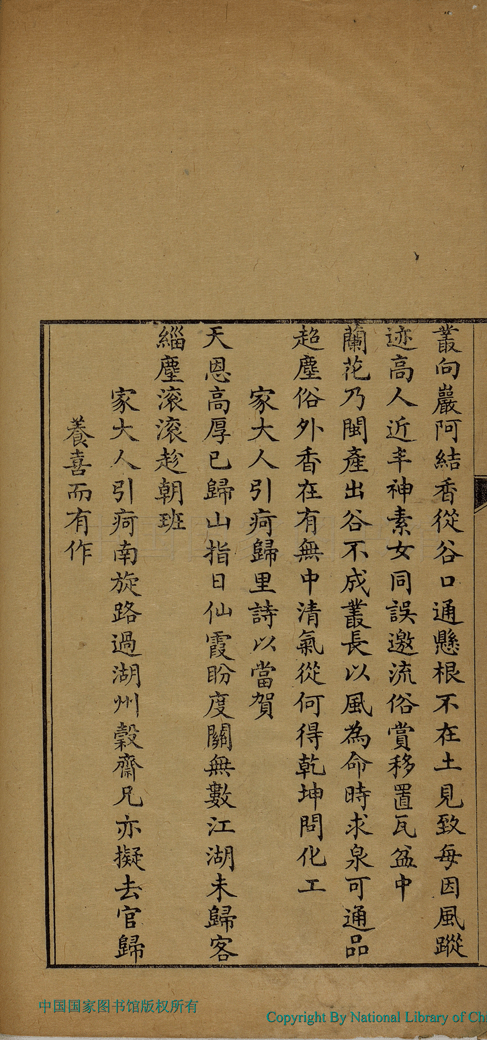 叢向巖阿結香從谷口通懸根不在土見致每因風蹤
迹高人近丰神素女同誤邀流俗賞移置瓦盆中
蘭花乃閩產出谷不成叢長以風為命時求泉可通品
超塵俗外香在有無中清氣從何得乾坤問化工
家大人引疴歸里詩以當賀
天恩高厚已歸山指日仙霞盼度關無數江湖未歸客
緇塵滚滚趁朝班
家大人引疴南旋路過湖州穀齋兄亦擬去官歸
養喜而有作
中国国家图书馆版权所有
Copyright By National Library of Ch